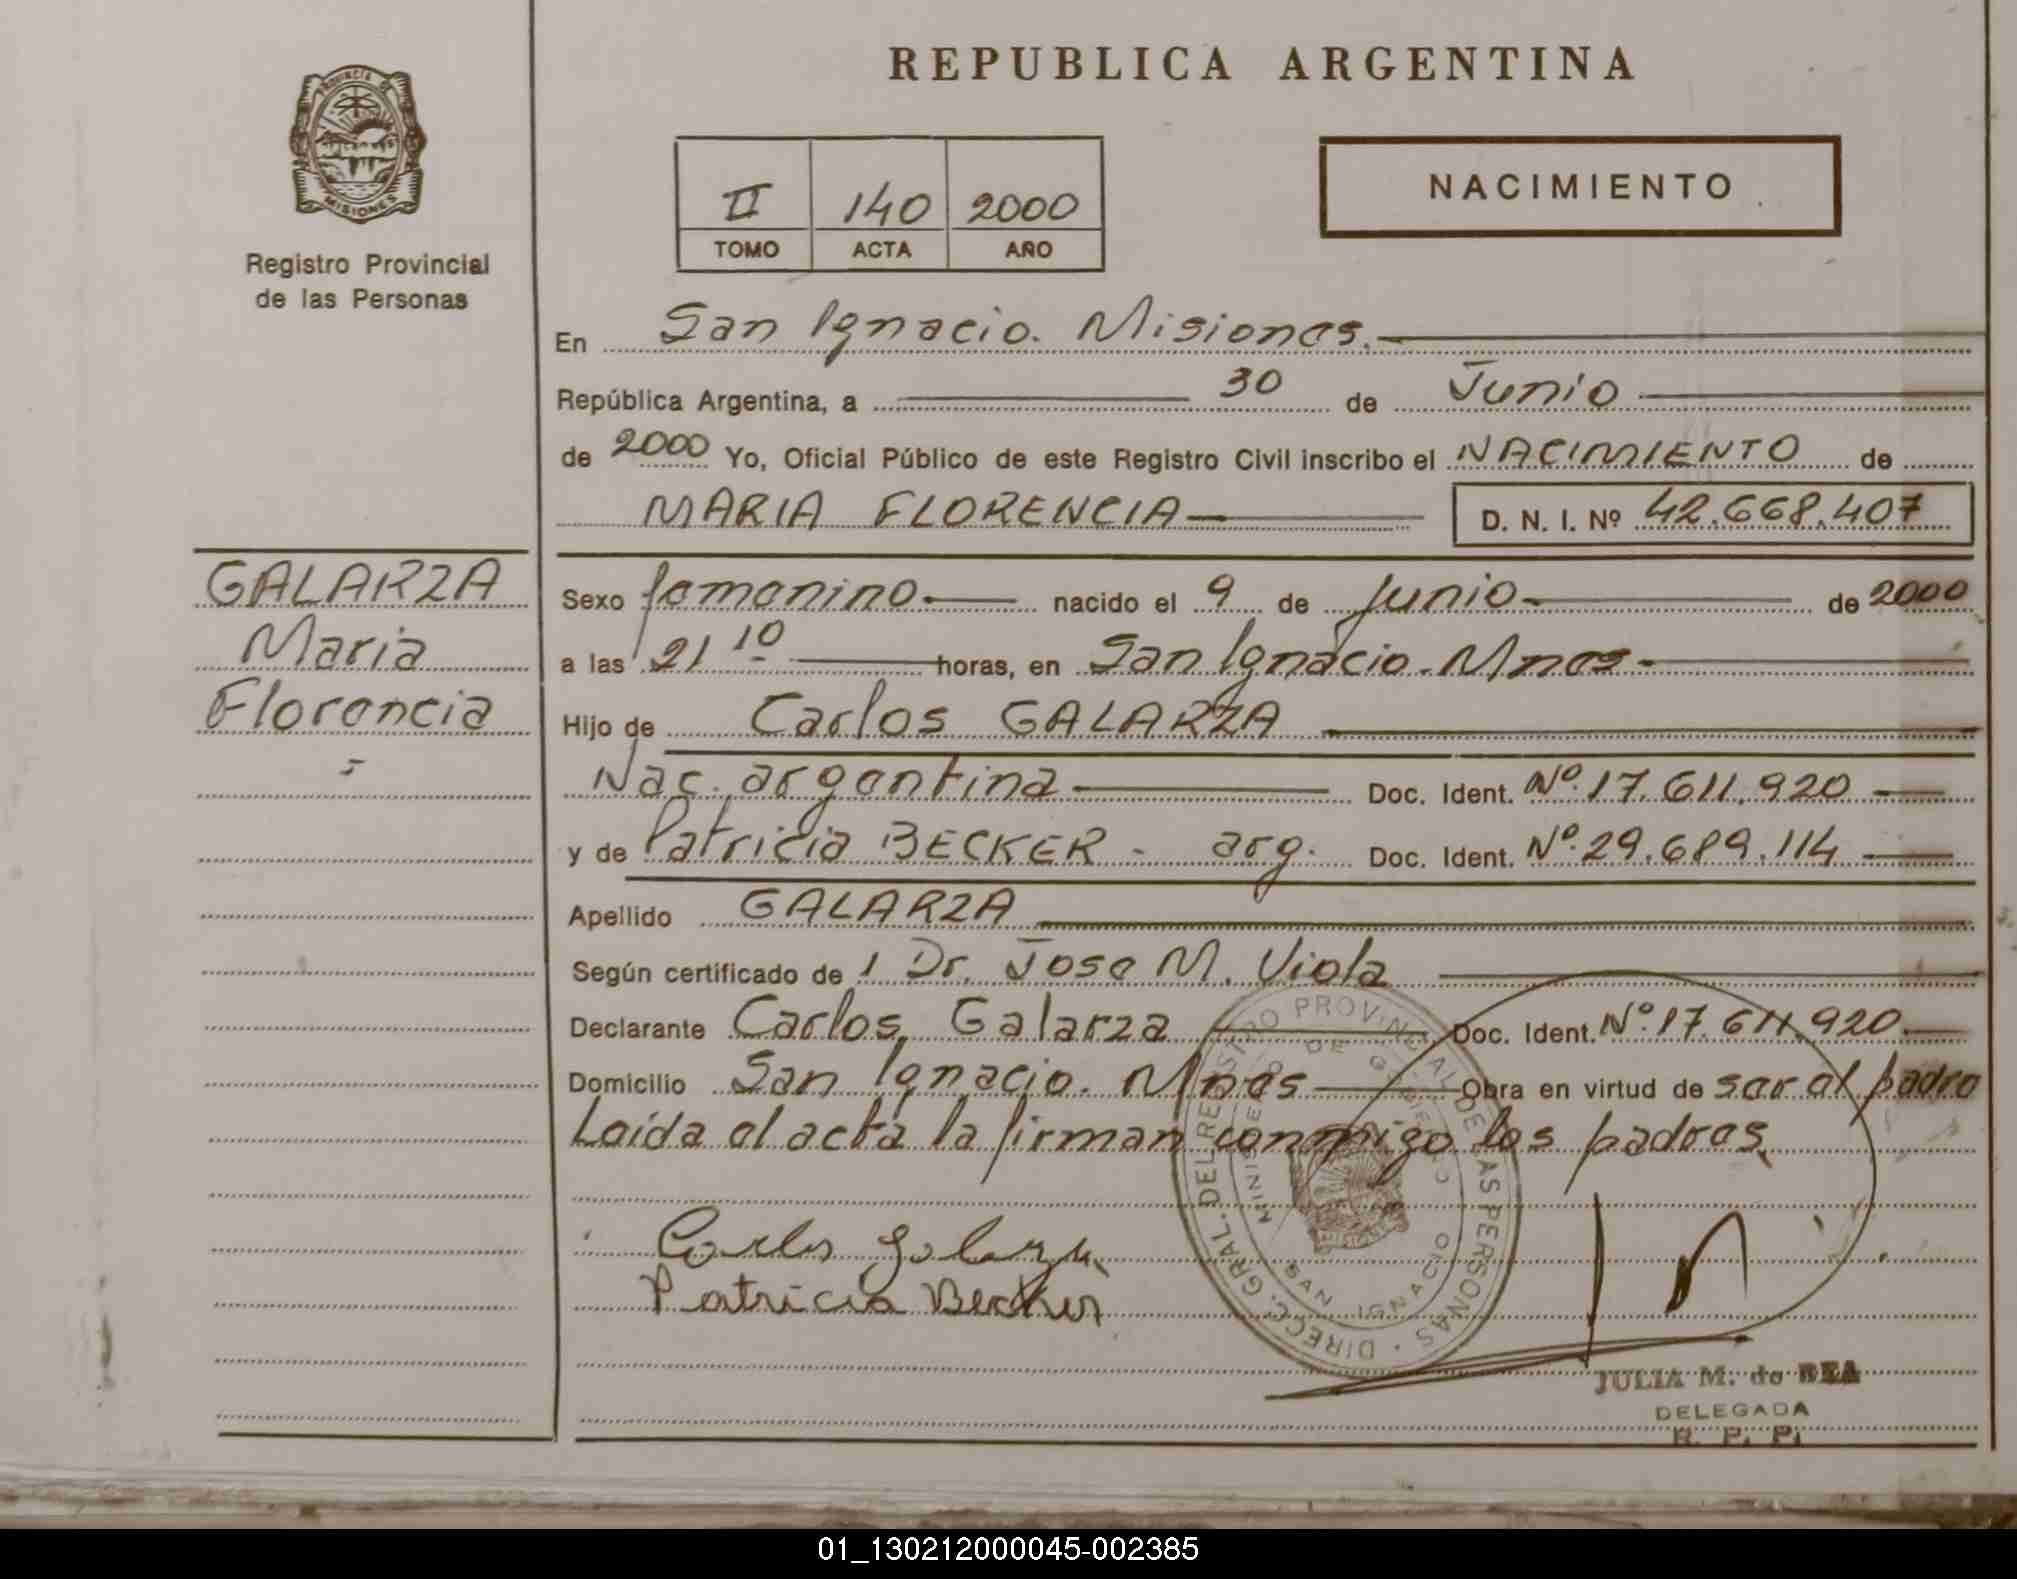 REPUBLICA ARGENTINA
PROVINCIA DE
MISIONES
Registro Provincial
de las Personas
II 140 2000
TOMO ACTA AÑO
NACIMIENTO
En San Ignacio. Misiones.
República Argentina, a 30 de Junio
de 2000 Yo, Oficial Público de este Registro Civil inscribo el NACIMIENTO de
MARIA FLORENCIA D. N. I. Nº 42.668.407
GALARZA
Maria
Florencia
Sexo femenino nacido el 9 de junio de 2000
a las 21 10 horas, en San Ignacio. Mnes
Hijo de Carlos GALARZA
Nac. argentina Doc. Ident. Nº 17.611.920
y de Patricia BECKER - arg. Doc. Ident. Nº 29.689.114
Apellido GALARZA
Según certificado de 1 Dr. Jose M. Viola
Declarante Carlos Galarza Doc. Ident. Nº 17.611.920
Domicilio San Ignacio. Mnes Obra en virtud de ser el padre
Leída el acta la firman conmigo los padres.
Carlos Galarza
Patricia Becker
DIRECC. GRAL. DEL REGISTRO PROVINCIAL DE LAS PERSONAS
MINISTERIO DE GOBIERNO
MISIONES
SAN IGNACIO
JULIA M. de REA
DELEGADA
R. P. P.
01_130212000045-002385